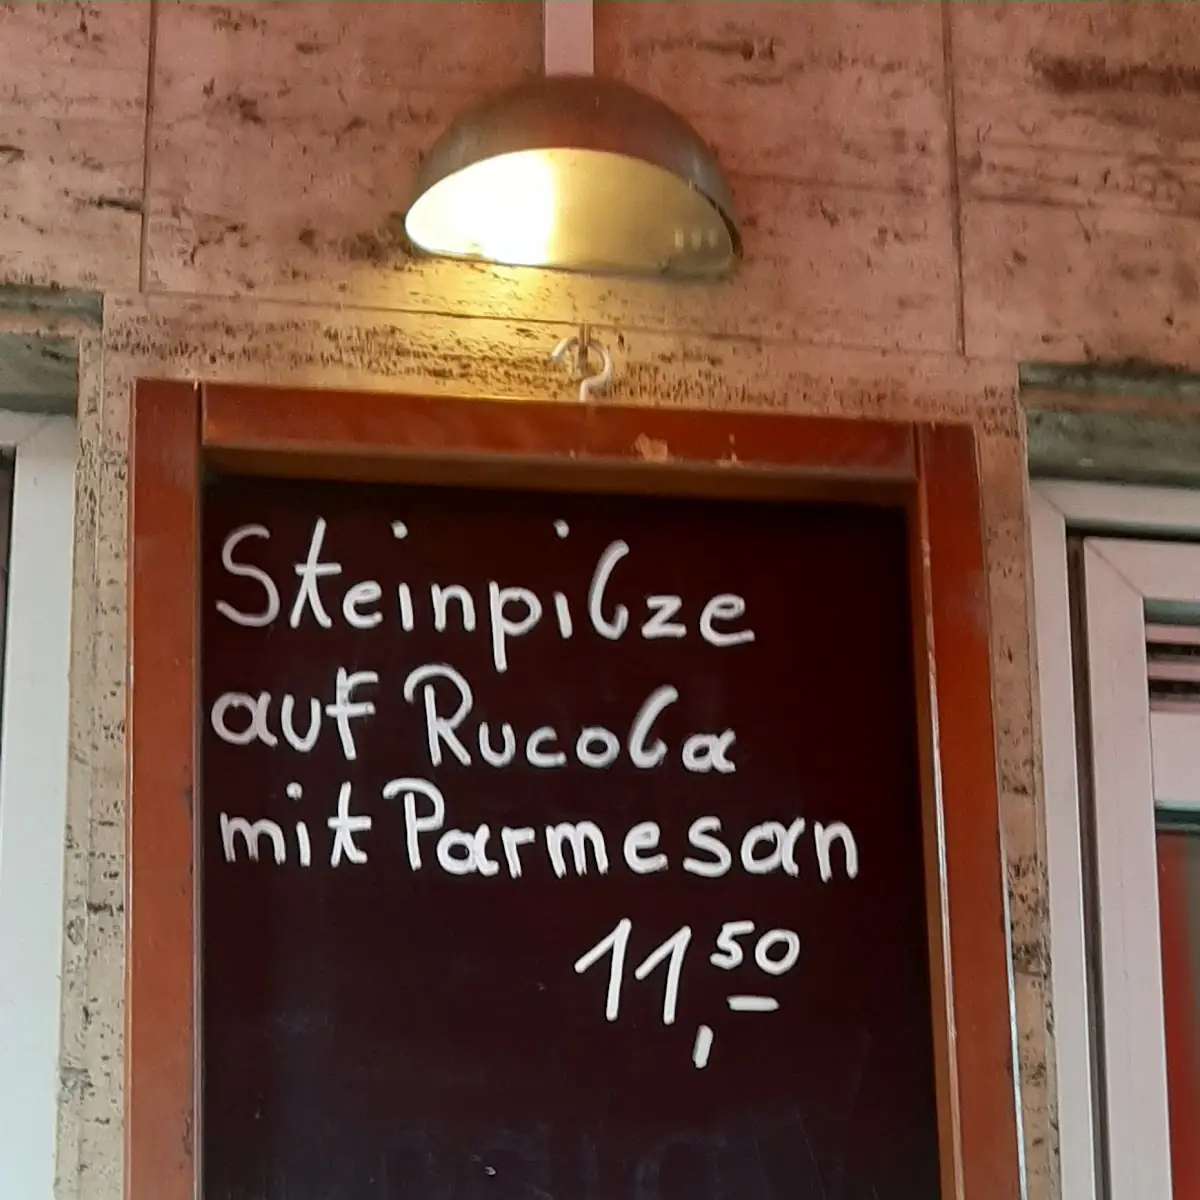 Steinpilze
auf Rucola
mit Parmesan
11,50